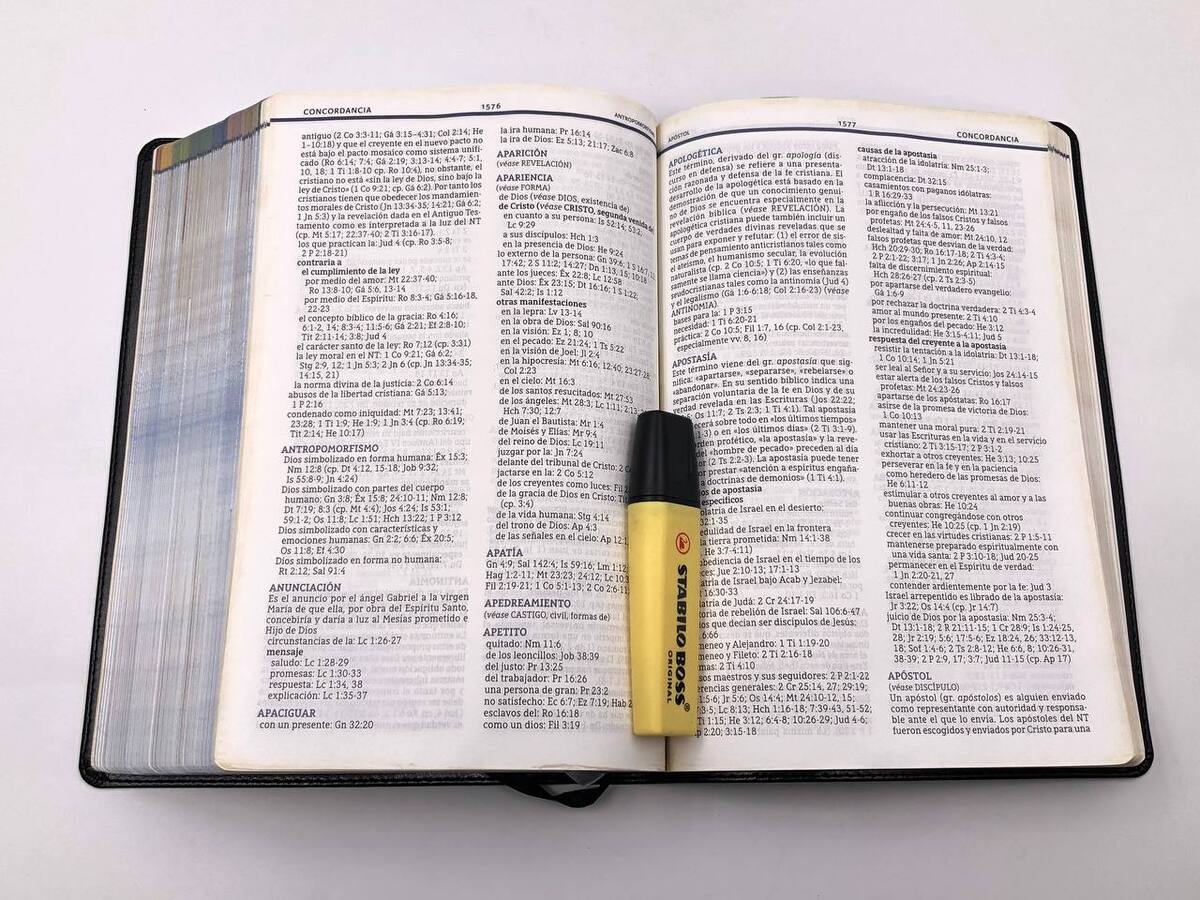 CONCORDANCIA
1576
ANTROPOMORFISMO
antiguo (2 Co 3:3-11; Gá 3:15-4:31; Col 2:14; He
1-10:18) y que el creyente en el nuevo pacto no
está bajo el pacto mosaico como sistema unifi-
cado (Ro 6:14; 7:4; Gá 2:19; 3:13-14; 4:4-7; 5:1,
10, 18; 1 Ti 1:8-10 cp. Ro 10:4), no obstante, el
cristiano no está «sin la ley de Dios, sino bajo la
ley de Cristo» (1 Co 9:21; cp. Gá 6:2). Por tanto los
cristianos tienen que obedecer los mandamien-
tos morales de Cristo (Jn 13:34-35; 14:21; Gá 6:2;
1 Jn 5:3) y la revelación dada en el Antiguo Tes-
tamento como es interpretada a la luz del NT
(cp. Mt 5:17; 22:37-40; 2 Ti 3:16-17).
los que practican la: Jud 4 (cp. Ro 3:5-8;
2 P 2:18-21)
contraria a
el cumplimiento de la ley
por medio del amor: Mt 22:37-40;
Ro 13:8-10; Gá 5:6, 13-14
por medio del Espíritu: Ro 8:3-4; Gá 5:16-18,
22-23
el concepto bíblico de la gracia: Ro 4:16;
6:1-2, 14; 8:3-4; 11:5-6; Gá 2:21; Ef 2:8-10;
Tit 2:11-14; 3:8; Jud 4
el carácter santo de la ley: Ro 7:12 (cp. 3:31)
la ley moral en el NT: 1 Co 9:21; Gá 6:2;
Stg 2:9, 12; 1 Jn 5:3; 2 Jn 6 (cp. Jn 13:34-35;
14:15, 21)
la norma divina de la justicia: 2 Co 6:14
abusos de la libertad cristiana: Gá 5:13;
1 P 2:16
condenado como iniquidad: Mt 7:23; 13:41;
23:28; 1 Ti 1:9; He 1:9; 1 Jn 3:4 (cp. Ro 6:19;
Tit 2:14; He 10:17)
ANTROPOMORFISMO
Dios simbolizado en forma humana: Éx 15:3;
Nm 12:8 (cp. Dt 4:12, 15-18; Job 9:32;
Is 55:8-9; Jn 4:24)
Dios simbolizado con partes del cuerpo
humano: Gn 3:8; Éx 15:8; 24:10-11; Nm 12:8;
Dt 7:19; 8:3 (cp. Mt 4:4); Jos 4:24; Is 53:1;
59:1-2; Os 11:8; Lc 1:51; Hch 13:22; 1 P 3:12
Dios simbolizado con características y
emociones humanas: Gn 2:2; 6:6; Éx 20:5;
Os 11:8; Ef 4:30
Dios simbolizado en forma no humana:
Rt 2:12; Sal 91:4
ANUNCIACIÓN
Es el anuncio por el ángel Gabriel a la virgen
María de que ella, por obra del Espíritu Santo,
concebiría y daría a luz al Mesías prometido e
Hijo de Dios
circunstancias de la: Lc 1:26-27
mensaje
saludo: Lc 1:28-29
promesas: Lc 1:30-33
respuesta: Lc 1:34, 38
explicación: Lc 1:35-37
APACIGUAR
con un presente: Gn 32:20
la ira humana: Pr 16:14
la ira de Dios: Ez 5:13; 21:17; Zac 6:8
APARICIÓN
(véase REVELACIÓN)
APARIENCIA
(véase FORMA)
de Dios (véase DIOS, existencia de)
de Cristo (véase CRISTO, segunda venida de)
en cuanto a su persona: Is 52:14; 53:2;
Lc 9:29
a sus discípulos: Hch 1:3
en la presencia de Dios: He 9:24
lo externo de la persona: Gn 39:6; 1 S 16:7, 12;
17:42; 2 S 11:2; 14:27; Dn 1:13, 15; 10:18
ante los jueces: Éx 22:8; Lc 12:58
ante Dios: Éx 23:15; Dt 16:16; 1 S 1:22;
Sal 42:2; Is 1:12
otras manifestaciones
en la lepra: Lv 13-14
en la obra de Dios: Sal 90:16
en la visión: Ez 1; 8; 10
en el pecado: Ez 21:24; 1 Ts 5:22
en la visión de Joel: Jl 2:4
en la hipocresía: Mt 6:16; 12:40; 23:27-28;
Col 2:23
en el cielo: Mt 16:3
de los santos resucitados: Mt 27:53
de los ángeles: Mt 28:3; Lc 1:11; 2:13-
Hch 7:30; 12:7
de Juan el Bautista: Mr 1:4
de Moisés y Elías: Mr 9:4
del reino de Dios: Lc 19:11
juzgar por la: Jn 7:24
delante del tribunal de Cristo: 2 C
jactarse en la: 2 Co 5:12
de los creyentes como luces: Fil 2
de la gracia de Dios en Cristo: Tit
(cp. 3:4)
de la vida humana: Stg 4:14
del trono de Dios: Ap 4:3
de las señales en el cielo: Ap 12:1
APATÍA
Gn 4:9; Sal 142:4; Is 59:16; Lm 1:12
Hag 1:2-11; Mt 23:23; 24:12; Lc 10:3
Fil 2:19-21; 1 Co 5:1-13; 2 Co 2:6-11
APEDREAMIENTO
(véase CASTIGO, civil, formas de)
APETITO
quitado: Nm 11:6
de los leoncillos: Job 38:39
del justo: Pr 13:25
del trabajador: Pr 16:26
una persona de gran: Pr 23:2
no satisfecho: Ec 6:7; Ez 7:19; Hab 2
esclavos del: Ro 16:18
como un dios: Fil 3:19
APÓSTOL
1577
CONCORDANCIA
APOLOGÉTICA
Este término, derivado del gr. apología (dis-
curso en defensa) se refiere a una presenta-
ción razonada y defensa de la fe cristiana. El
desarrollo de la apologética está basado en la
demostración de que un conocimiento genui-
no de Dios se encuentra especialmente en la
revelación bíblica (véase REVELACIÓN). La
apologética cristiana puede también incluir un
cuerpo de verdades divinas reveladas que se
usan para exponer y refutar: (1) el error de sis-
temas de pensamiento anticristianos tales como
el ateísmo, el humanismo secular, la evolución
naturalista (cp. 2 Co 10:5; 1 Ti 6:20, «lo que fal-
samente se llama ciencia») y (2) las enseñanzas
seudocristianas tales como la antinomia (Jud 4)
y el legalismo (Gá 1:6-6:18; Col 2:16-23) (véase
ANTINOMIA).
bases para la: 1 P 3:15
necesidad: 1 Ti 6:20-21
práctica: 2 Co 10:5; Fil 1:7, 16 (cp. Col 2:1-23,
especialmente vv. 8, 16)
APOSTASÍA
Este término viene del gr. apostasia que sig-
nifica: «apartarse», «separarse», «rebelarse» o
«abandonar». En su sentido bíblico indica una
separación voluntaria de la fe en Dios y de su
verdad revelada en las Escrituras (Jos 22:22;
5; Os 11:7; 2 Ts 2:3; 1 Ti 4:1). Tal apostasía
ecerá sobre todo en «los últimos tiempos»
1-3) o en «los últimos días» (2 Ti 3:1-9).
orden profético, «la apostasía» y la reve-
del «hombre de pecado» preceden al día
or (2 Ts 2:2-3). La apostasía puede tener
or prestar «atención a espíritus engaña-
a doctrinas de demonios» (1 Ti 4:1).
os de apostasía
específicos
olatría de Israel en el desierto:
32:1-35
edulidad de Israel en la frontera
a tierra prometida: Nm 14:1-38
He 3:7-4:11)
obediencia de Israel en el tiempo de los
ces: Jue 2:10-13; 17:1-13
atría de Israel bajo Acab y Jezabel:
16:30-33
atría de Judá: 2 Cr 24:17-19
oria de rebelión de Israel: Sal 106:6-47
os que decían ser discípulos de Jesús:
6:66
meneo y Alejandro: 1 Ti 1:19-20
meneo y Fileto: 2 Ti 2:16-18
mas: 2 Ti 4:10
sos maestros y sus seguidores: 2 P 2:1-22
erencias generales: 2 Cr 25:14, 27; 29:19;
1:5-6; Jr 5:6; Os 14:4; Mt 24:10-12, 15;
3:5; Lc 8:13; Hch 1:16-18; 7:39-43, 51-52;
Ti 1:15; He 3:12; 6:4-8; 10:26-29; Jud 4-6;
p 2:20; 3:15-18
causas de la apostasía
atracción de la idolatría: Nm 25:1-3;
Dt 13:1-18
complacencia: Dt 32:15
casamientos con paganos idólatras:
1 R 16:29-33
la aflicción y la persecución: Mt 13:21
por engaño de los falsos Cristos y falsos
profetas: Mt 24:4-5, 11, 23-26
deslealtad y falta de amor: Mt 24:10, 12
falsos profetas que desvían de la verdad:
Hch 20:29-30; Ro 16:17-18; 2 Ti 4:3-4;
2 P 2:1-22; 3:17; 1 Jn 2:26; Ap 2:14-15
falta de discernimiento espiritual:
Hch 28:26-27 (cp. 2 Ts 2:3-5)
por apartarse del verdadero evangelio:
Gá 1:6-9
por rechazar la doctrina verdadera: 2 Ti 4:3-4
amor al mundo presente: 2 Ti 4:10
por los engaños del pecado: He 3:12
la incredulidad: He 3:15-4:11; Jud 5
respuesta del creyente a la apostasía
resistir la tentación a la idolatría: Dt 13:1-18;
1 Co 10:14; 1 Jn 5:21
ser leal al Señor y a su servicio: Jos 24:14-15
estar alerta de los falsos Cristos y falsos
profetas: Mt 24:23-26
apartarse de los apóstatas: Ro 16:17
asirse de la promesa de victoria de Dios:
1 Co 10:13
mantener una moral pura: 2 Ti 2:19-21
usar las Escrituras en la vida y en el servicio
cristiano: 2 Ti 3:15-17; 2 P 3:1-2
exhortar a otros creyentes: He 3:13; 10:25
perseverar en la fe y en la paciencia
como heredero de las promesas de Dios:
He 6:11-12
estimular a otros creyentes al amor y a las
buenas obras: He 10:24
continuar congregándose con otros
creyentes: He 10:25 (cp. 1 Jn 2:19)
crecer en las virtudes cristianas: 2 P 1:5-11
mantenerse preparado espiritualmente con
una vida santa: 2 P 3:10-18; Jud 20-25
permanecer en el Espíritu de verdad:
1 Jn 2:20-21, 27
contender ardientemente por la fe: Jud 3
Israel arrepentido es librado de la apostasía:
Jr 3:22; Os 14:4 (cp. Jr 14:7)
juicio de Dios por la apostasía: Nm 25:3-4;
Dt 13:1-18; 2 R 21:11-15; 1 Cr 28:9; Is 1:24-25,
28; Jr 2:19; 5:6; 17:5-6; Ez 18:24, 26; 33:12-13,
18; Sof 1:4-6; 2 Ts 2:8-12; He 6:6, 8; 10:26-31,
38-39; 2 P 2:9, 17; 3:7; Jud 11-15 (cp. Ap 17)
APÓSTOL
(véase DISCÍPULO)
Un apóstol (gr. apóstolos) es alguien enviado
como representante con autoridad y responsa-
ble ante el que lo envía. Los apóstoles del NT
fueron escogidos y enviados por Cristo para una
STABILO BOSS®
ORIGINAL